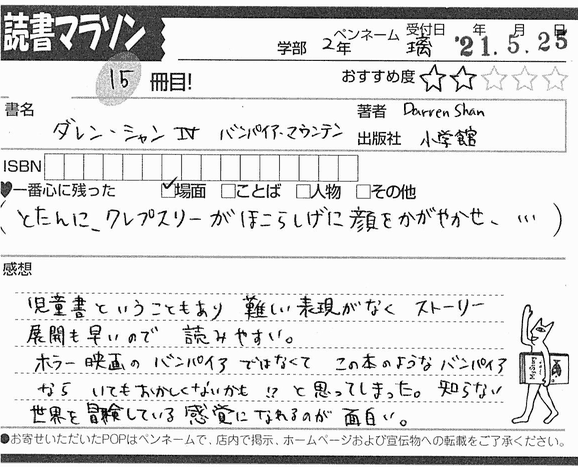 読書マラソン
学部 2年 ペンネーム 璃 受付日 年 月 日 '21.5.25
15 冊目!
おすすめ度☆☆☆☆☆
書名 ダレン・シャン Ⅳ バンパイア・マウンテン
著者 Darren Shan
出版社 小学館
ISBN
♥一番心に残った ☑場面 □ことば □人物 □その他
(とたんに、クレプスリーがほこらしげに顔をかがやかせ、…)
感想
児童書ということもあり 難しい表現がなく ストーリー
展開も早いので 読みやすい。
ホラー映画の バンパイア ではなくて この本のような バンパイア
なら いてもおかしくないかも !? と思ってしまった。 知らない
世界を冒険している感覚になれるのが 面白い。
●お寄せいただいたPOPはペンネームで、店内で掲示、ホームページおよび宣伝物への転載をご了承ください。